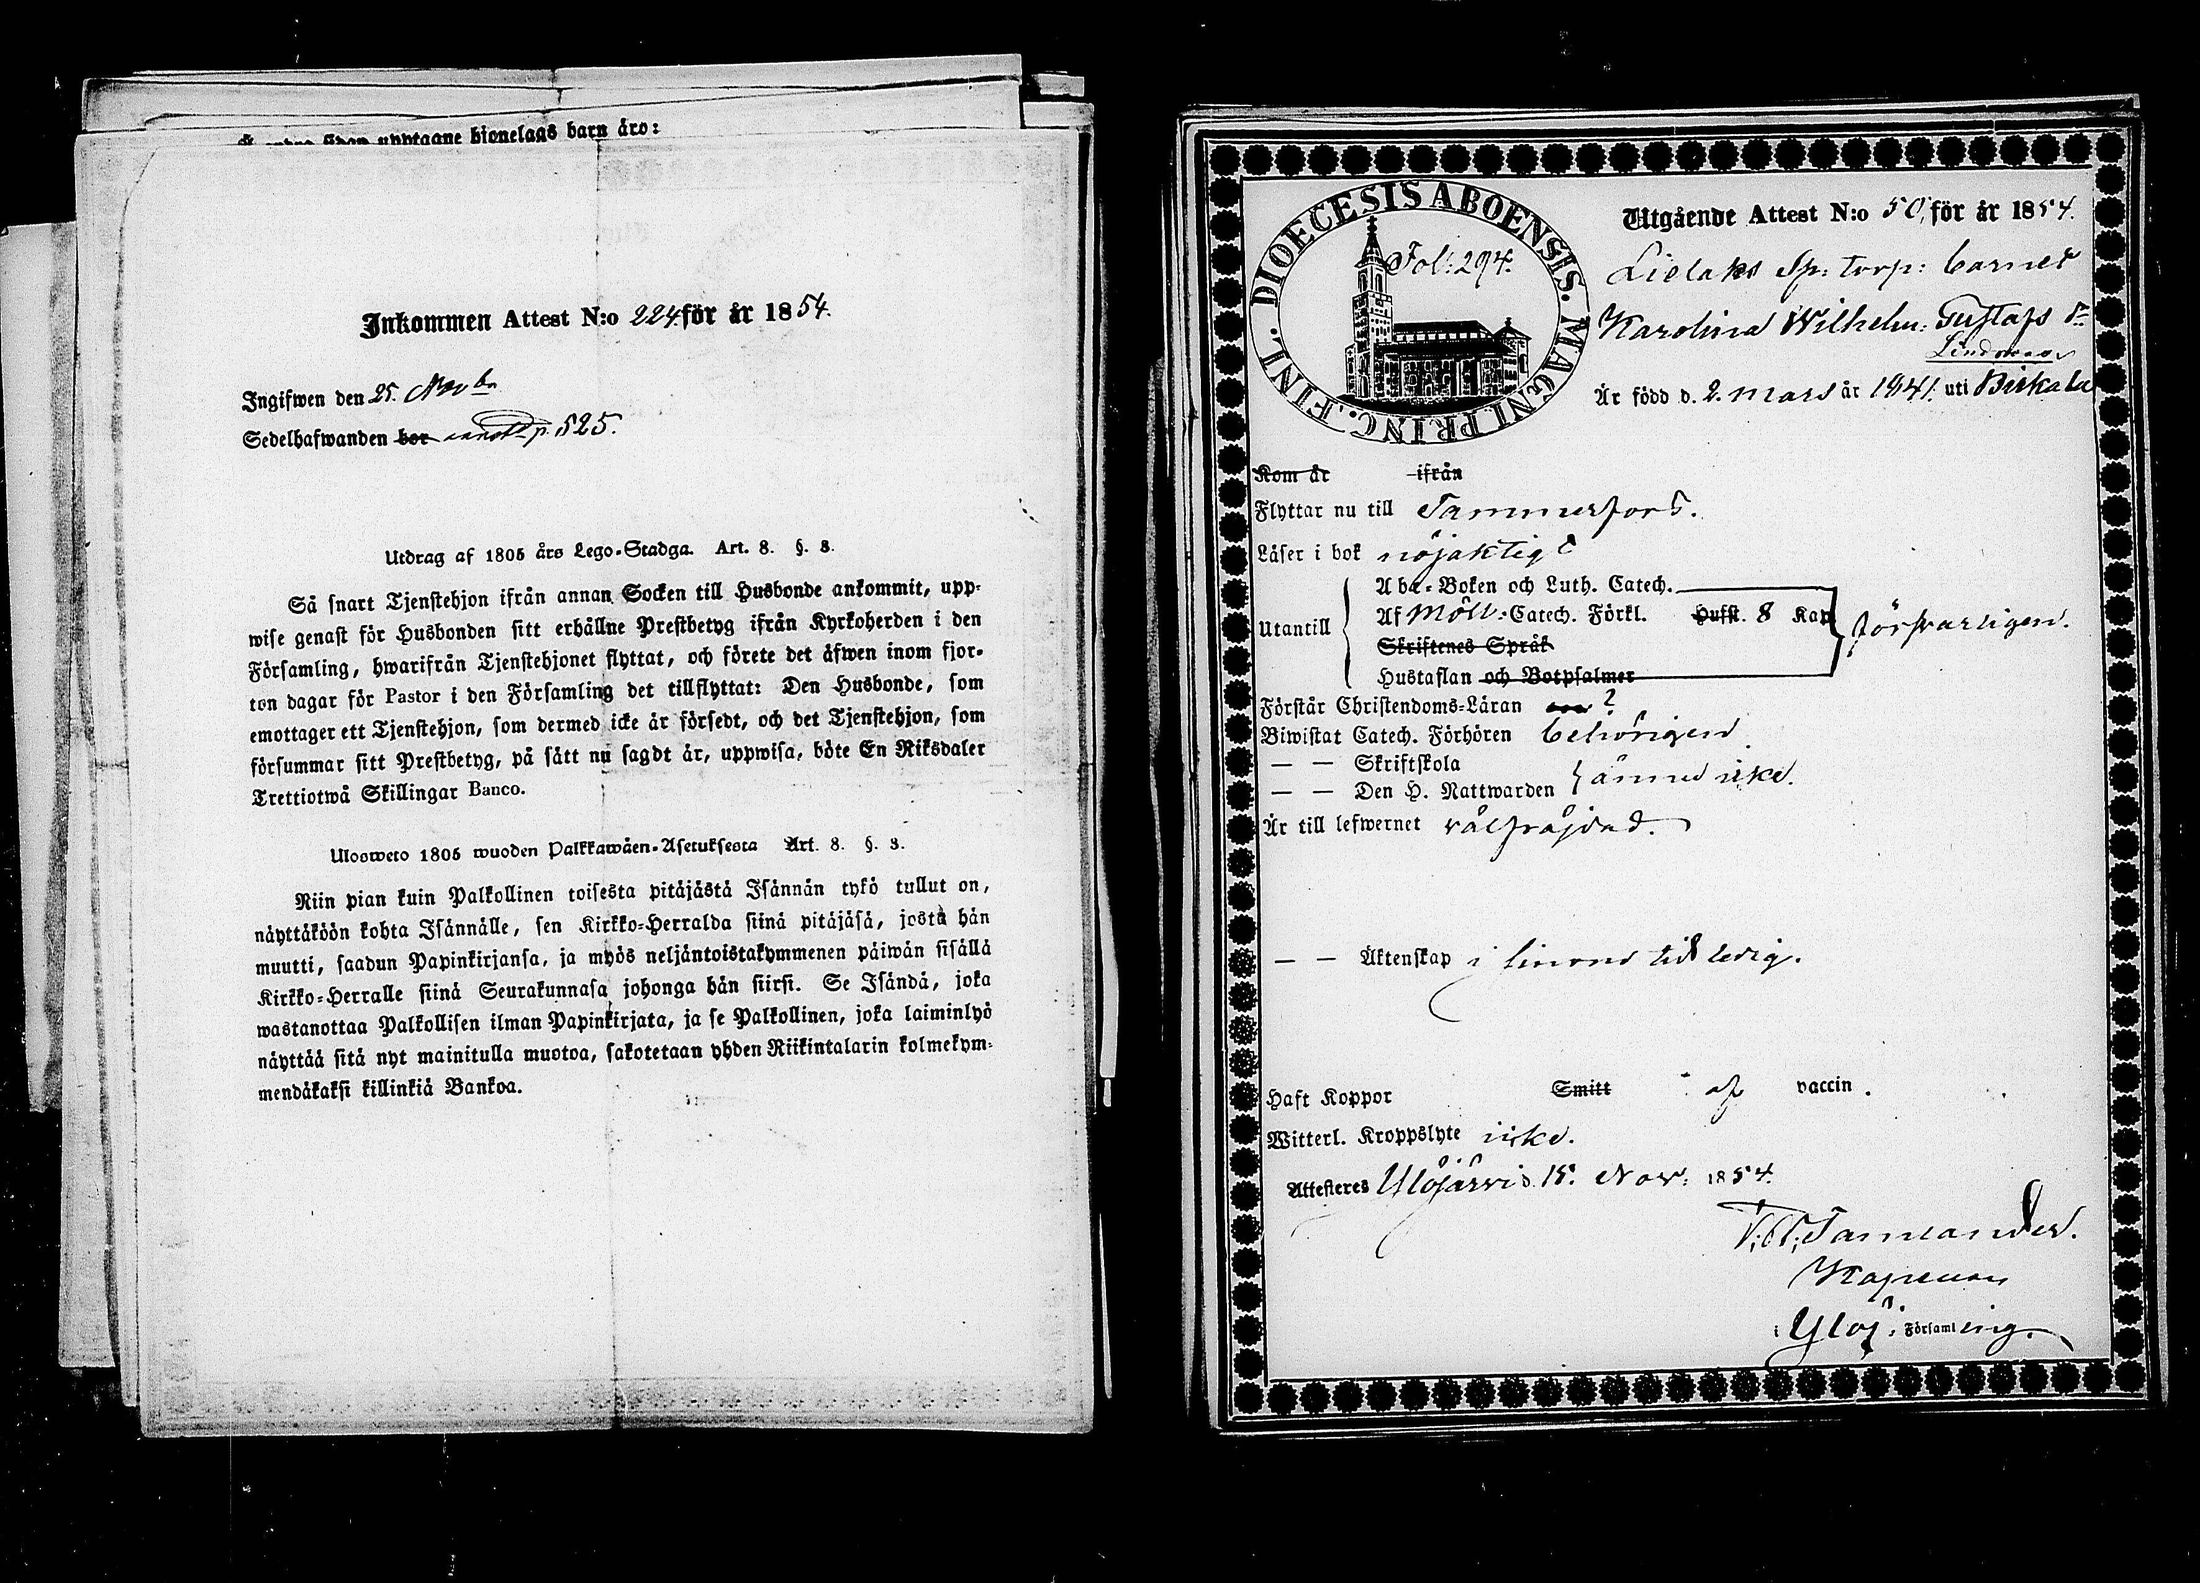 upptagne bionelags barn äro:
Inkommen Attest N:o 224 för år 1854.
Ingifwen den 25. Novbr
Sedelhafwanden bor p. 525.
Utdrag af 1805 års Lego-Stadga. Art. 8. §. 3.
Så snart Tjenstehjon ifrån annan Socken till Husbonde ankommit, upp-
wise genast för Husbonden sitt erhållne Prestbetyg ifrån Kyrkoherden i den
Församling, hwarifrån Tjenstehjonet flyttat, och förete det äfwen inom fjor-
ton dagar för Pastor i den Församling det tillflyttat: Den Husbonde, som
emottager ett Tjenstehjon, som dermed icke är försedt, och det Tjenstehjon, som
försummar sitt Prestbetyg, på sätt nu sagdt är, uppwisa, böte En Riksdaler
Trettiotwå Skillingar Banco.
Ulosweto 1805 wuoden Palkkawäen-Asetuksesta Art. 8. §. 3.
Niin pian kuin Palkollinen toisesta pitäjästä Isännän tykö tullut on,
näyttäköön kohta Isännälle, sen Kirkko-Herralda siinä pitäjäsä, josta hän
muutti, saadun Papinkirjansa, ja myös neljäntoistakymmenen päiwän sisällä
Kirkko-Herralle siinä Seurakunnasa johonga hän siirsi. Se Isändä, joka
wastanottaa Palkollisen ilman Papinkirjata, ja se Palkollinen, joka laiminlyö
näyttää sitä nyt mainitulla muotoa, sakotetaan yhden Riikintalarin kolmekym-
mendäkaksi killinkiä Bankoa.
DIOECESIS ABOENSIS. MAGNI. PRINC. FINL.
Fol: 294.
Utgående Attest N:o 50, för år 1854.
Lielaks Sp: torp: barnet
Karolina Wilhelm: Gustafs dr
Är född d. 2. mars år 1841. uti Birkala
Kom år ifrån
Flyttar nu till Tammerfors.
Läser i bok nöjaktigt
Utantill
Abc-Boken och Luth. Catech.
Af Möll: Catech. Förkl. Hufst. 8 Kap
Skriftenes Språk
Hustaflan och Botpsalmer
försvarligen.
Förstår Christendoms-Läran ?
Biwistat Catech. Förhören behörigen
— — Skriftskola
— — Den H. Nattwarden
ännu icke.
Är till lefwernet välfräjdad.
— — Äktenskap i sinom tid ledig.
Haft Koppor Smitt af vaccin.
Witterl. Kroppslyte icke.
Attesteres Ylöjärvi d. 15. Nov: 1854.
Tamlander.
Kapellan
i Ylöj: Församling.